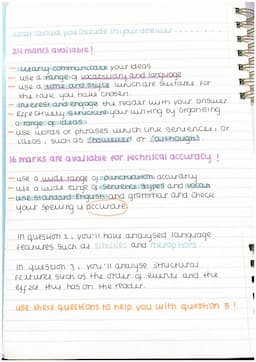 what should you include in your answer
24 marks available!
- clearly communicate your ideas
- use a range of vocabulary and language
- use a tone and style which are suitable for
the task you have chosen.
- interest and engage the reader with your answer
- Effectively structure your writing by organising
a range of ideas
- use words or phrases which link sentences, or
ideas, such as 'however' or 'although'.
16 marks are available for technical accuracy!
- use a wide range of punctuation accurately
- use a wide range of sentence types and vocab
- use Standard English and grammar and check
your spelling is accurate
In question 2, you'll have analysed language
features such as similes and metaphors.
In question 3, you'll analyse structural
features such as the order of events and the
effect this has on the reader.
use these questions to help you with question 5!